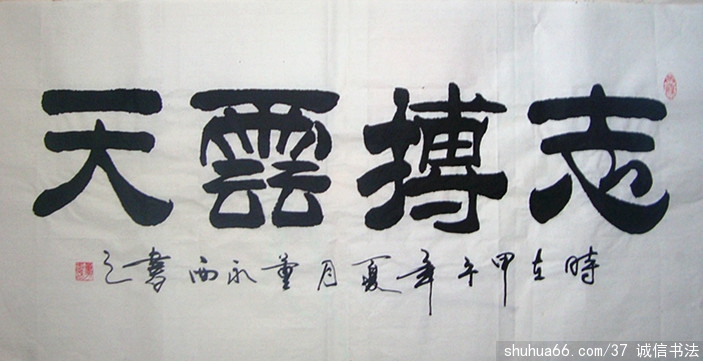 志搏雲天
時在甲午年夏月董永西書之
shuhua66.com/37 诚信书法